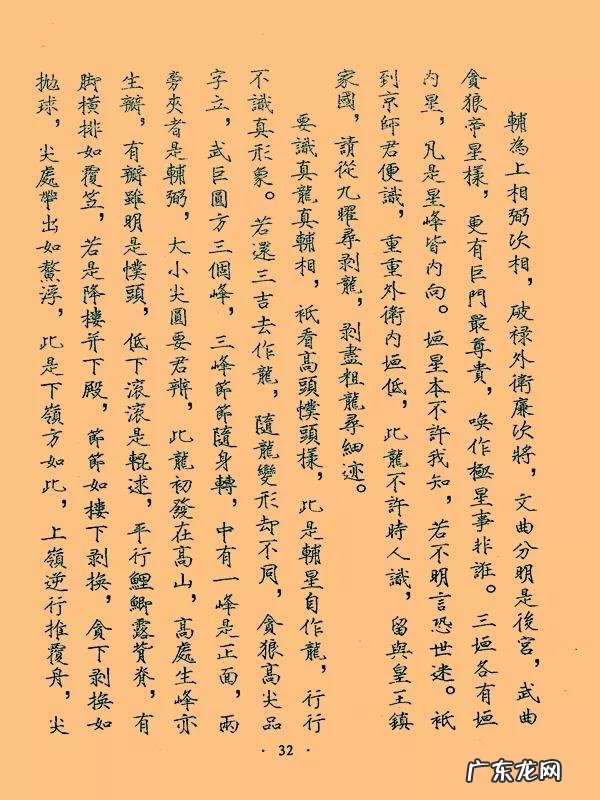 輔為上相弼次相，破祿外衛廉次將，文曲分明是後宮，武曲
貪狼帝星樣，更有巨門最尊貴，喚作極星事非誑。三垣各有垣
內星，凡是星峰皆內向。垣星本不許我知，若不明言恐世迷。祗
到京師君便識，重重外衛內垣低，此龍不許時人識，留與皇王鎮
家國，請從九曜尋剥龍，剥盡粗龍尋細迹。
要識真龍真輔相，祗看高頭幞頭樣，此是輔星自作龍，行行
不識真形象。若還三吉去作龍，隨龍變形却不同，貪狼高尖品
字立，武巨圓方三個峰，三峰節節隨身轉，中有一峰是正面，兩
旁夾者是輔弼，大小尖圓要君辨，此龍初發在高山，高處生峰亦
生瓣，有瓣雖明是幞頭，低下滾滾是輥逑，平行鯉鯽露背脊，有
脚橫排如覆笠，若是降樓并下殿，節節如樓下剥換，貪下剥換如
拋球，尖處帶出如鰲浮，此是下嶺方如此，上嶺逆行推覆舟，尖
· 32 ·
广东龙网